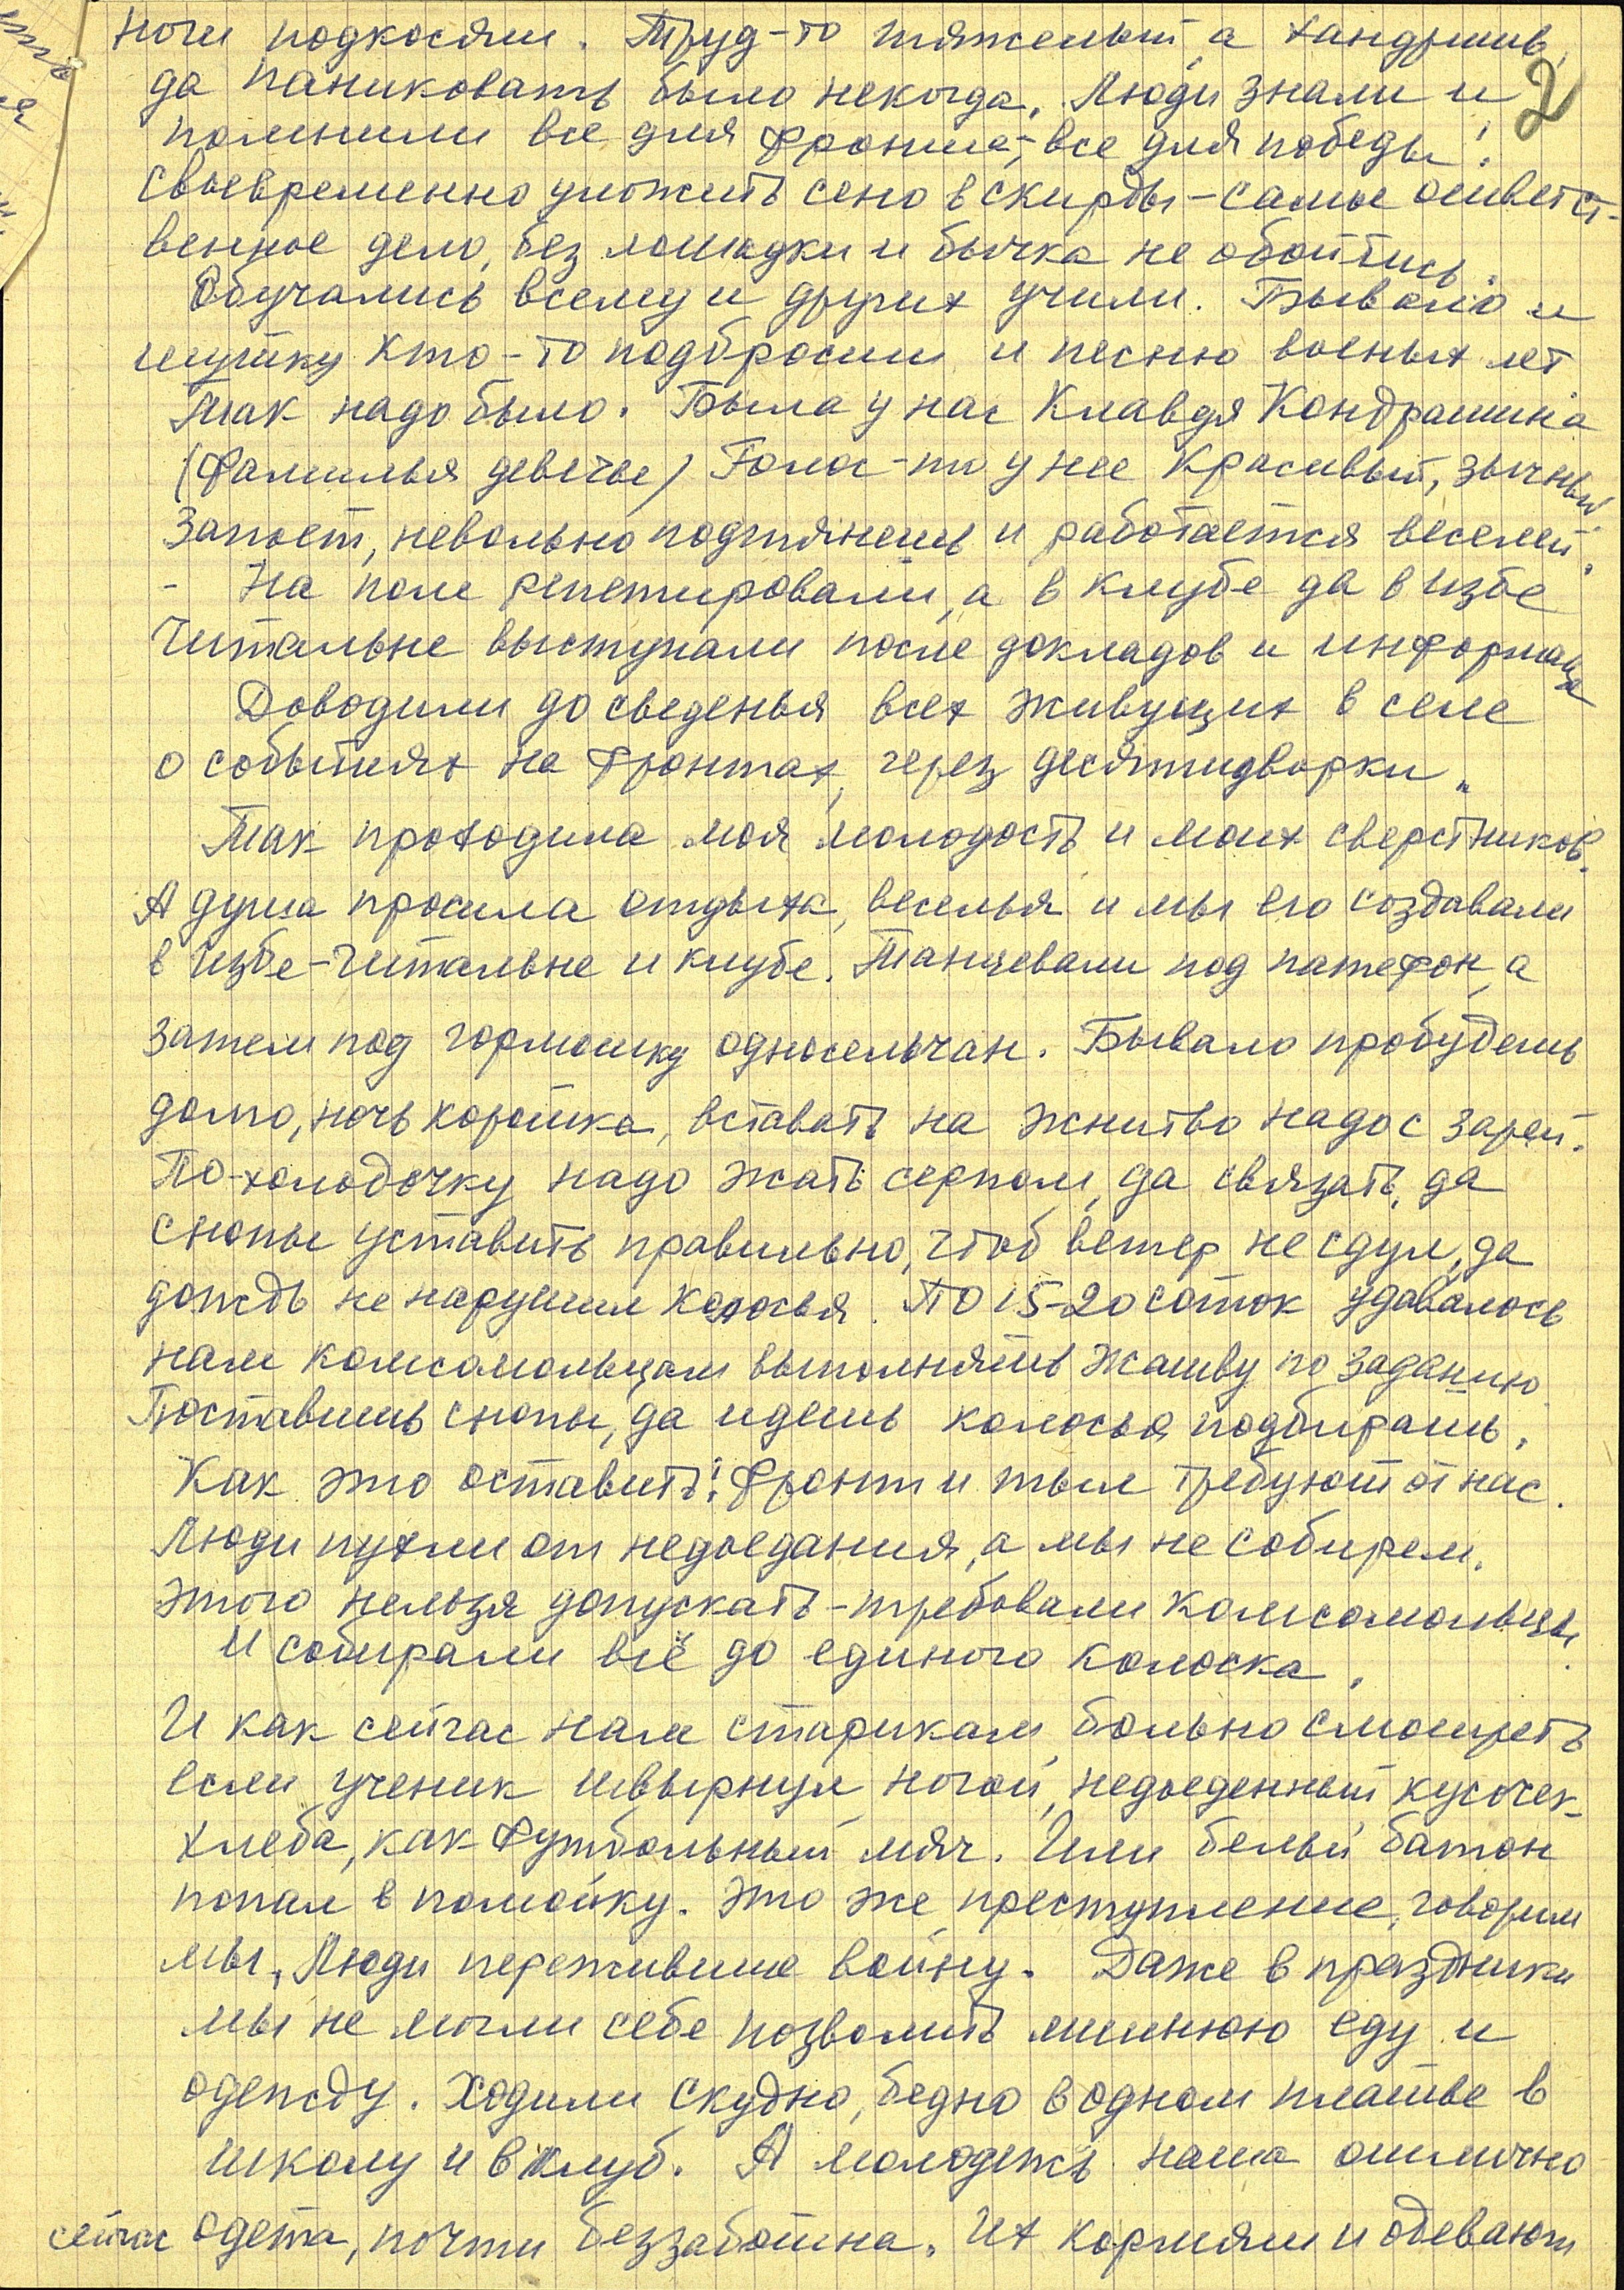 ноги подкосями. Труд-то тяжелый, а хандрить,
да паниковать было некогда. Люди знали и
2
помнили все для фронта, все для победы!
Своевременно уложить сено в скирды - самое ответст-
венное дело, без лошадки и бычка не обойтись.
Обучались всему и других учили. Бывало и
шутку кто-то подбросит и песню военых лет
Так надо было. Была у нас Клавдя Кондрашина
(фамилья девечье) Голос-то у нее красивый, зычный.
Запоет, невольно подтянешь и работается веселей.
- На поле репетировали, а в клубе да в избе
читальне выступали после докладов и информаци
Доводили до сведенья всех живущих в селе
о событиях на фронтах, через десятидворки.
Так проходила моя молодость и моих сверстников.
А душа просила отдыха, веселья и мы его создавали
в избе-читальне и клубе. Танцевали под патефон, а
затем под гормошку односельчан. Бывало пробудешь
долго, ночь коротка, вставать на жнитво надо с зарей.
По-холодочку надо жать серпом, да связать, да
снопы уставить правильно, чтоб ветер не сдул, да
дождь не нарушил колосья. По 15-20 соток удавалось
нам комсомольцам выполнять жатву по заданию
Поставишь снопы, да идешь колосья подбирашь.
Как это оставить! Фронт и тыл требуют от нас.
Люди пухли от недоедания, а мы не соберем.
Этого нельзя допускать - требовали комсомольцы.
И собирали всё до единого колоска.
И как сейчас нам старикам, больно смотреть
если ученик швырнул ногой, недоеденный кусочек
хлеба, как футбольный мяч. Или белый батон
попал в помойку. Это же преступление, говорим
мы, Люди пережившие войну. Даже в праздники
мы не могли себе позволить лишнюю еду и
одежду. Ходили скудно, бедно в одном платье в
школу и в клуб. А молодежь наша отлично
сейчас одета, почти беззаботна. Их кормят и одевают